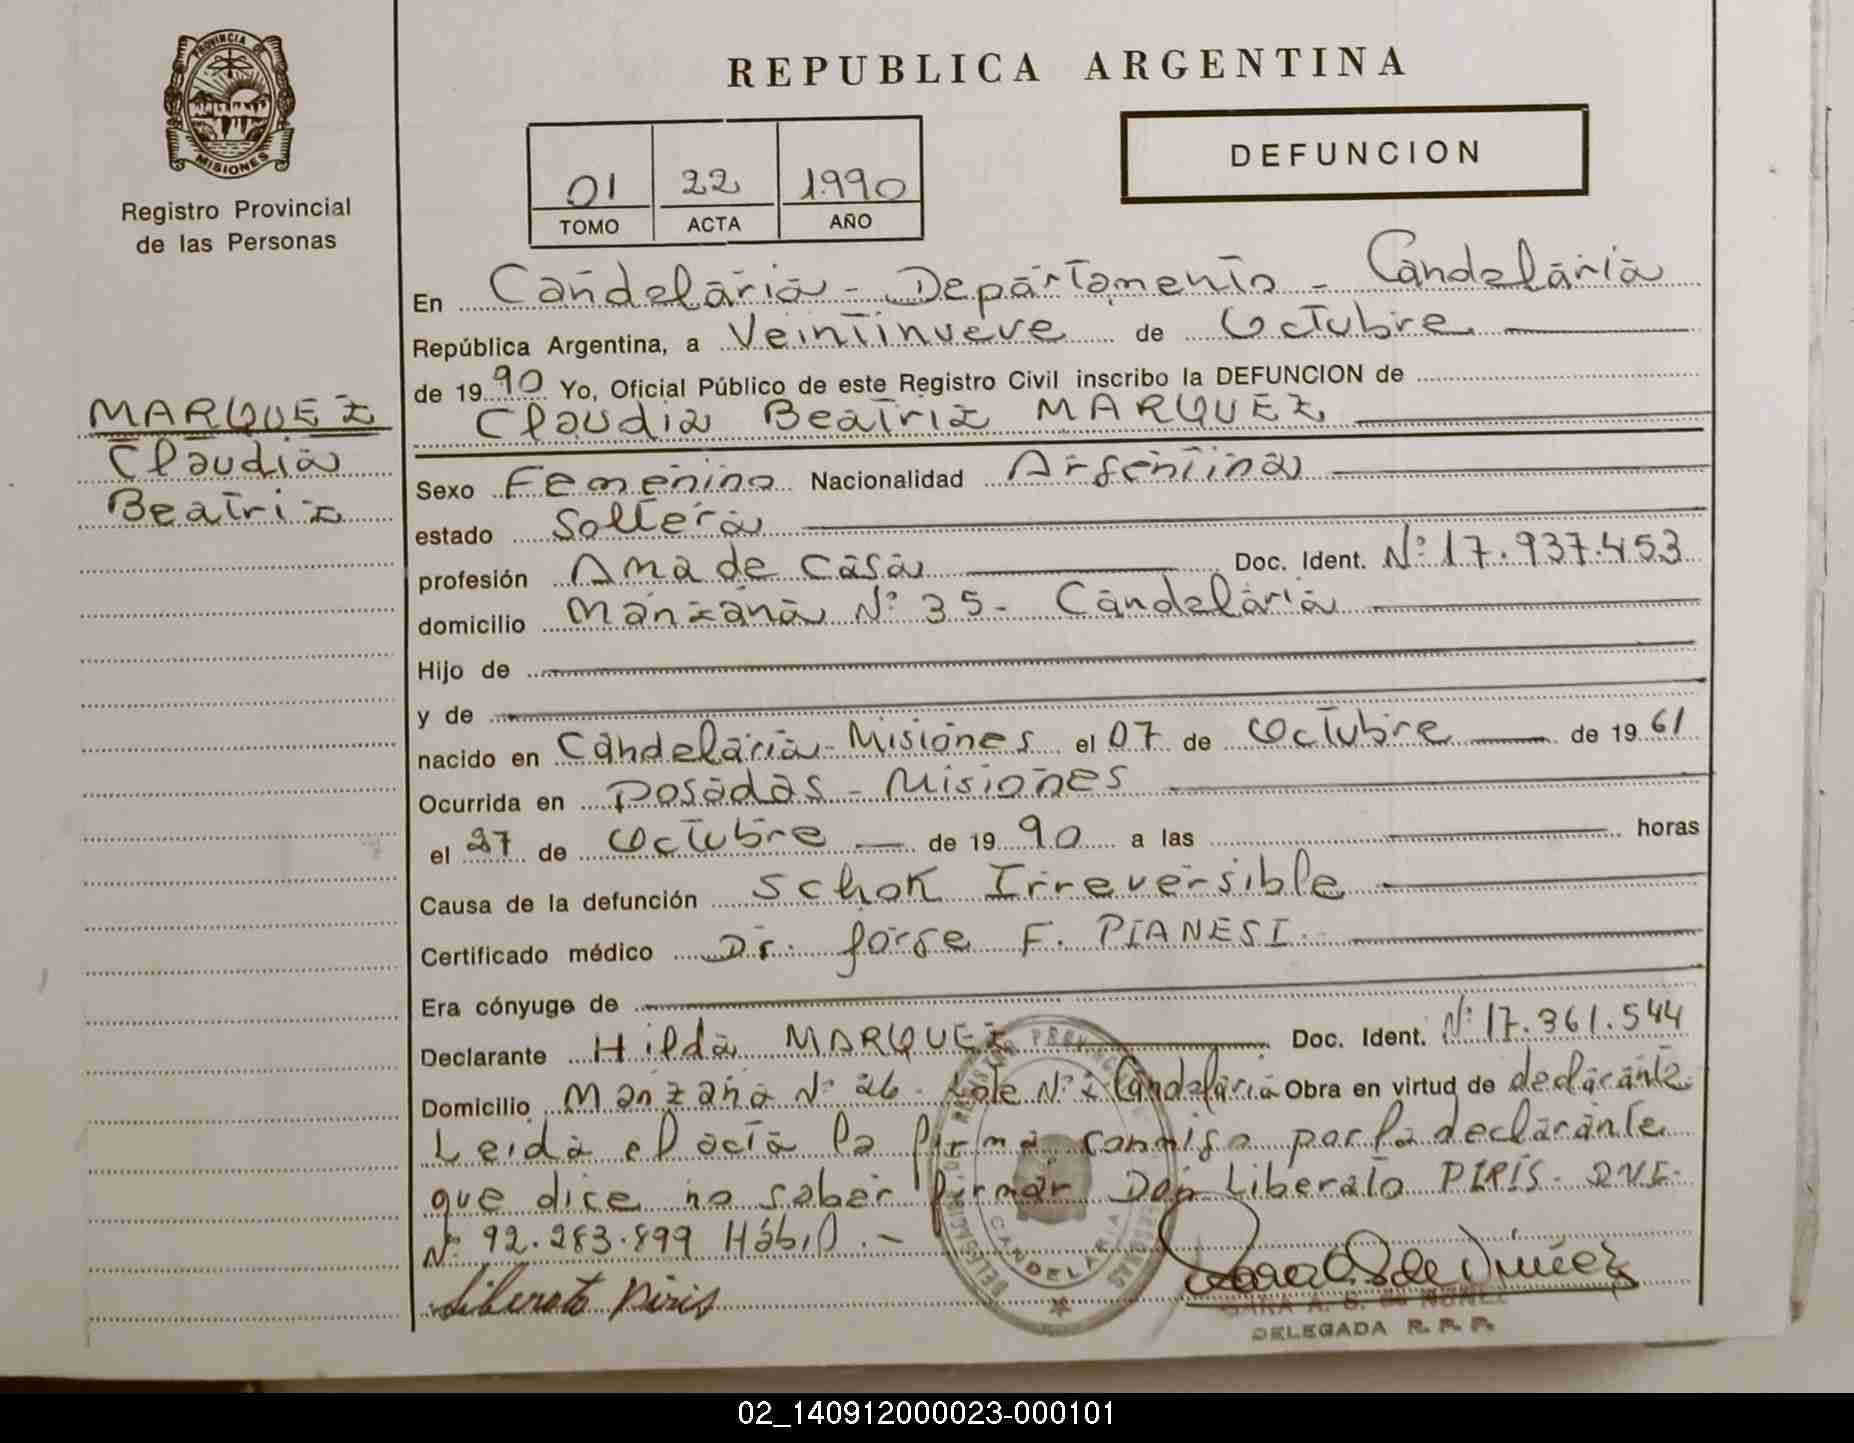 PROVINCIA DE
MISIONES
Registro Provincial
de las Personas
MARQUEZ
Claudia
Beatriz
REPUBLICA ARGENTINA
01 22 1990
TOMO ACTA AÑO
DEFUNCION
En Candelaria - Departamento - Candelaria
República Argentina, a Veintinueve de Octubre
de 1990 Yo, Oficial Público de este Registro Civil inscribo la DEFUNCION de
Claudia Beatriz MARQUEZ
Sexo Femenino Nacionalidad Argentina
estado Soltera
profesión Ama de Casa Doc. Ident. Nº 17.937.453
domicilio Manzana Nº 35 - Candelaria
Hijo de
y de
nacido en Candelaria - Misiones el 07 de Octubre de 1961
Ocurrida en Posadas - Misiones
el 27 de Octubre de 1990 a las horas
Causa de la defunción Schok Irreversible
Certificado médico Dr. Jorge F. PIANESI.
Era cónyuge de
Declarante Hilda MARQUEZ Doc. Ident. Nº 17.361.544
Domicilio Manzana Nº 26 - Lote Nº Candelaria Obra en virtud de declarante
Leida el acta la firma conmigo por la declarante
que dice no saber firmar Don Liberato PIRIS.
Nº 92.283.899 Hábil.-
Liberato Piris
DELEGADA R. P. P.
CANDELARIA
02_140912000023-000101